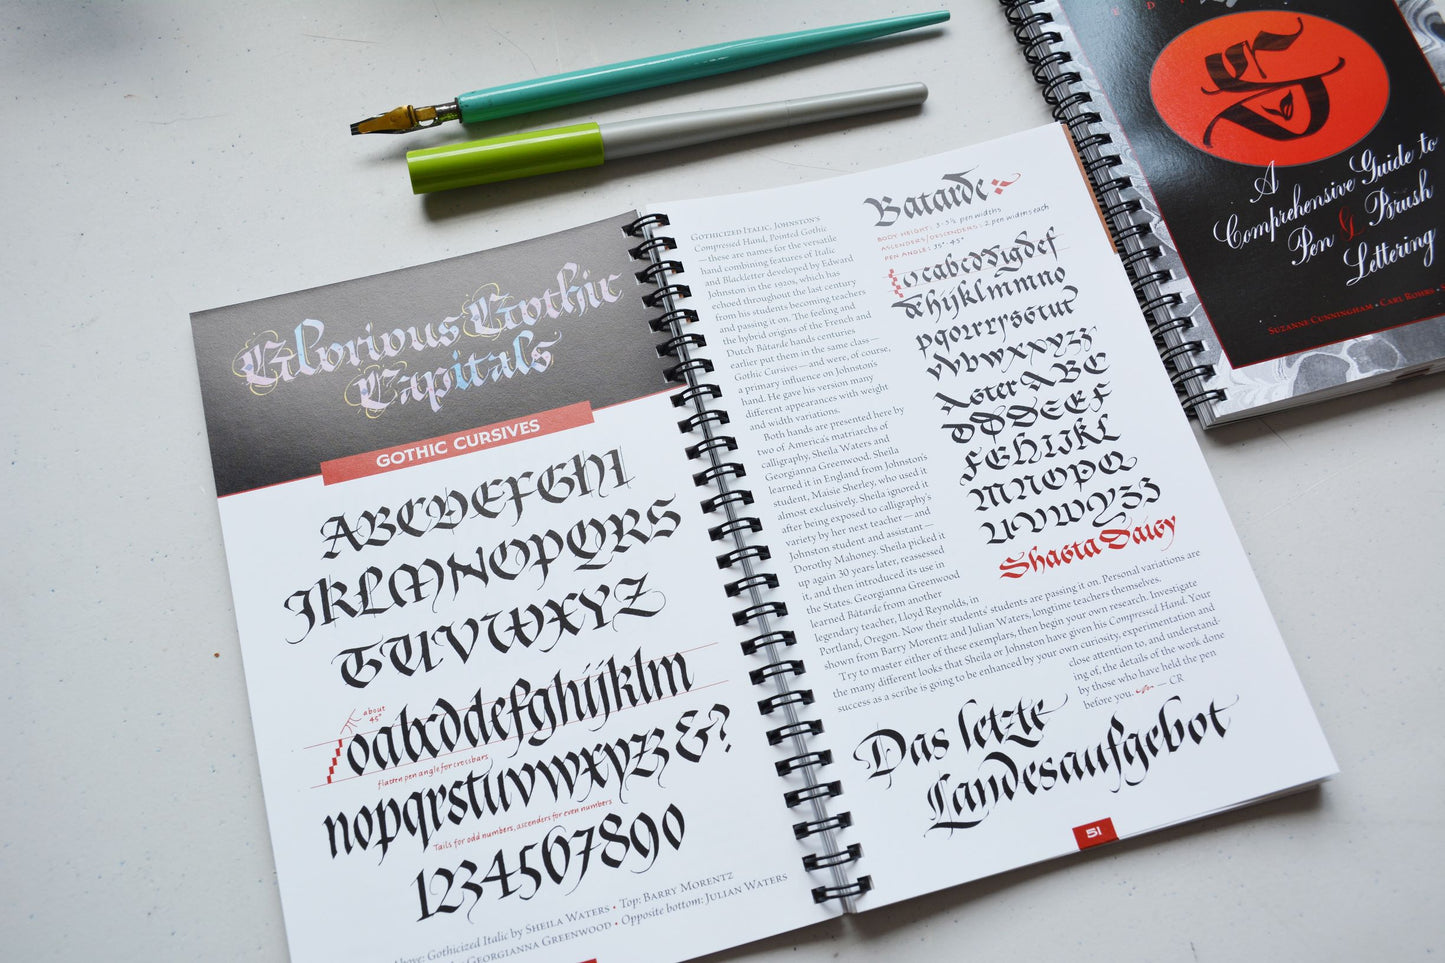 Glorious Gothic
Capitals
GOTHIC CURSIVES
ABCDEFGHI
JKLMNOPQRS
TUVWXYZ
about
45°
oabcddefghijklm
flatten pen angle for crossbars
nopqrstuvwxyz &?
Tails for odd numbers, ascenders for even numbers
1234567890
Above: Gothicized Italic by SHEILA WATERS • Top: BARRY MORENTZ
GEORGIANNA GREENWOOD • Opposite bottom: JULIAN WATERS
GOTHICIZED ITALIC, JOHNSTON'S
Compressed Hand, Pointed Gothic
—these are names for the versatile
hand combining features of Italic
and Blackletter developed by Edward
Johnston in the 1920s, which has
echoed throughout the last century
from his students becoming teachers
and passing it on. The feeling and
the hybrid origins of the French and
Dutch Bâtarde hands centuries
earlier put them in the same class—
Gothic Cursives—and were, of course,
a primary influence on Johnston's
hand. He gave his version many
different appearances with weight
and width variations.
Both hands are presented here by
two of America's matriarchs of
calligraphy, Sheila Waters and
Georgianna Greenwood. Sheila
learned it in England from Johnston's
student, Maisie Sherley, who used it
almost exclusively. Sheila ignored it
after being exposed to calligraphy's
variety by her next teacher—and
Johnston student and assistant—
Dorothy Mahoney. Sheila picked it
up again 30 years later, reassessed
it, and then introduced its use in
the States. Georgianna Greenwood
learned Bâtarde from another
legendary teacher, Lloyd Reynolds, in
Portland, Oregon. Now their students' students are passing it on. Personal variations are
shown from Barry Morentz and Julian Waters, longtime teachers themselves.
Try to master either of these exemplars, then begin your own research. Investigate
the many different looks that Sheila or Johnston have given his Compressed Hand. Your
success as a scribe is going to be enhanced by your own curiosity, experimentation and
close attention to, and understand-
ing of, the details of the work done
by those who have held the pen
before you. CR
Batarde
BODY HEIGHT: 3-3½ pen widths
ASCENDERS/DESCENDERS: 2 pen widths each
PEN ANGLE: 35°-45°
ocabcddigdef
dhijklmmno
pqorrrsstut
vvbwxyyzz
Aster ABC
DDDEEF
FGHIJKL
MNOPQ
UVVWYZZ
Shasta Daisy
Das letzte
Landesaufgebot
51
A
Comprehensive Guide to
Pen & Brush
Lettering
SUZANNE CUNNINGHAM • CARL ROHRS •